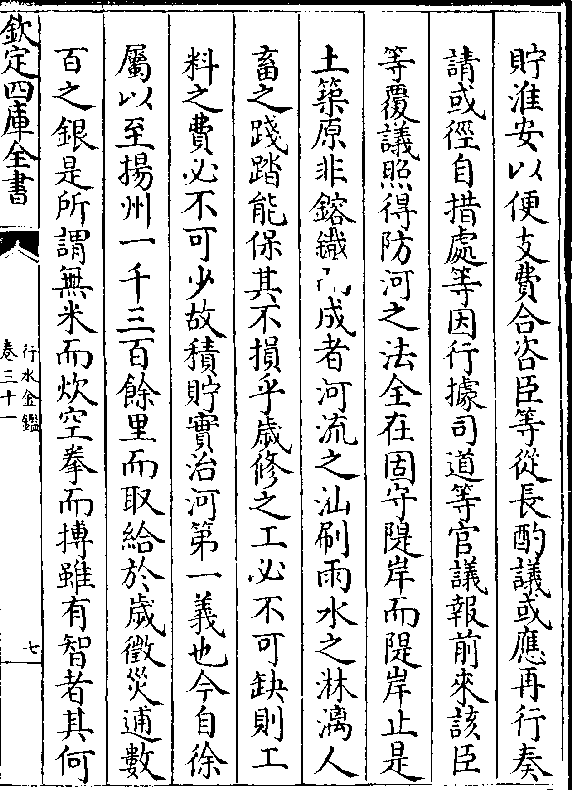 貯淮安以便支費合咨臣等從長酌議或應再行奏
請或徑自措處等因行據司道等官議報前來該臣
等覆議照得防河之法全在固守隄岸而隄岸止是
土築原非鎔鐵而成者河流之汕刷雨水之淋漓人
畜之踐踏能保其不損乎歲修之工必不可缺則工
料之費必不可少故積貯實治河第一義也今自徐
屬以至揚州一千三百餘里而取給於歲徵災逋數
百之銀是所謂無米而炊空拳而搏雖有智者其何
欽定四庫全書
行水金鑑
卷三十一
七